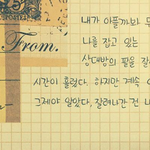 From.
내가 아플까봐 두
나를 잡고 있는
상대방의 팔을 잘
시간이 흘렀다. 하지만 계속
그제야 알았다. 잘라내간 건 내